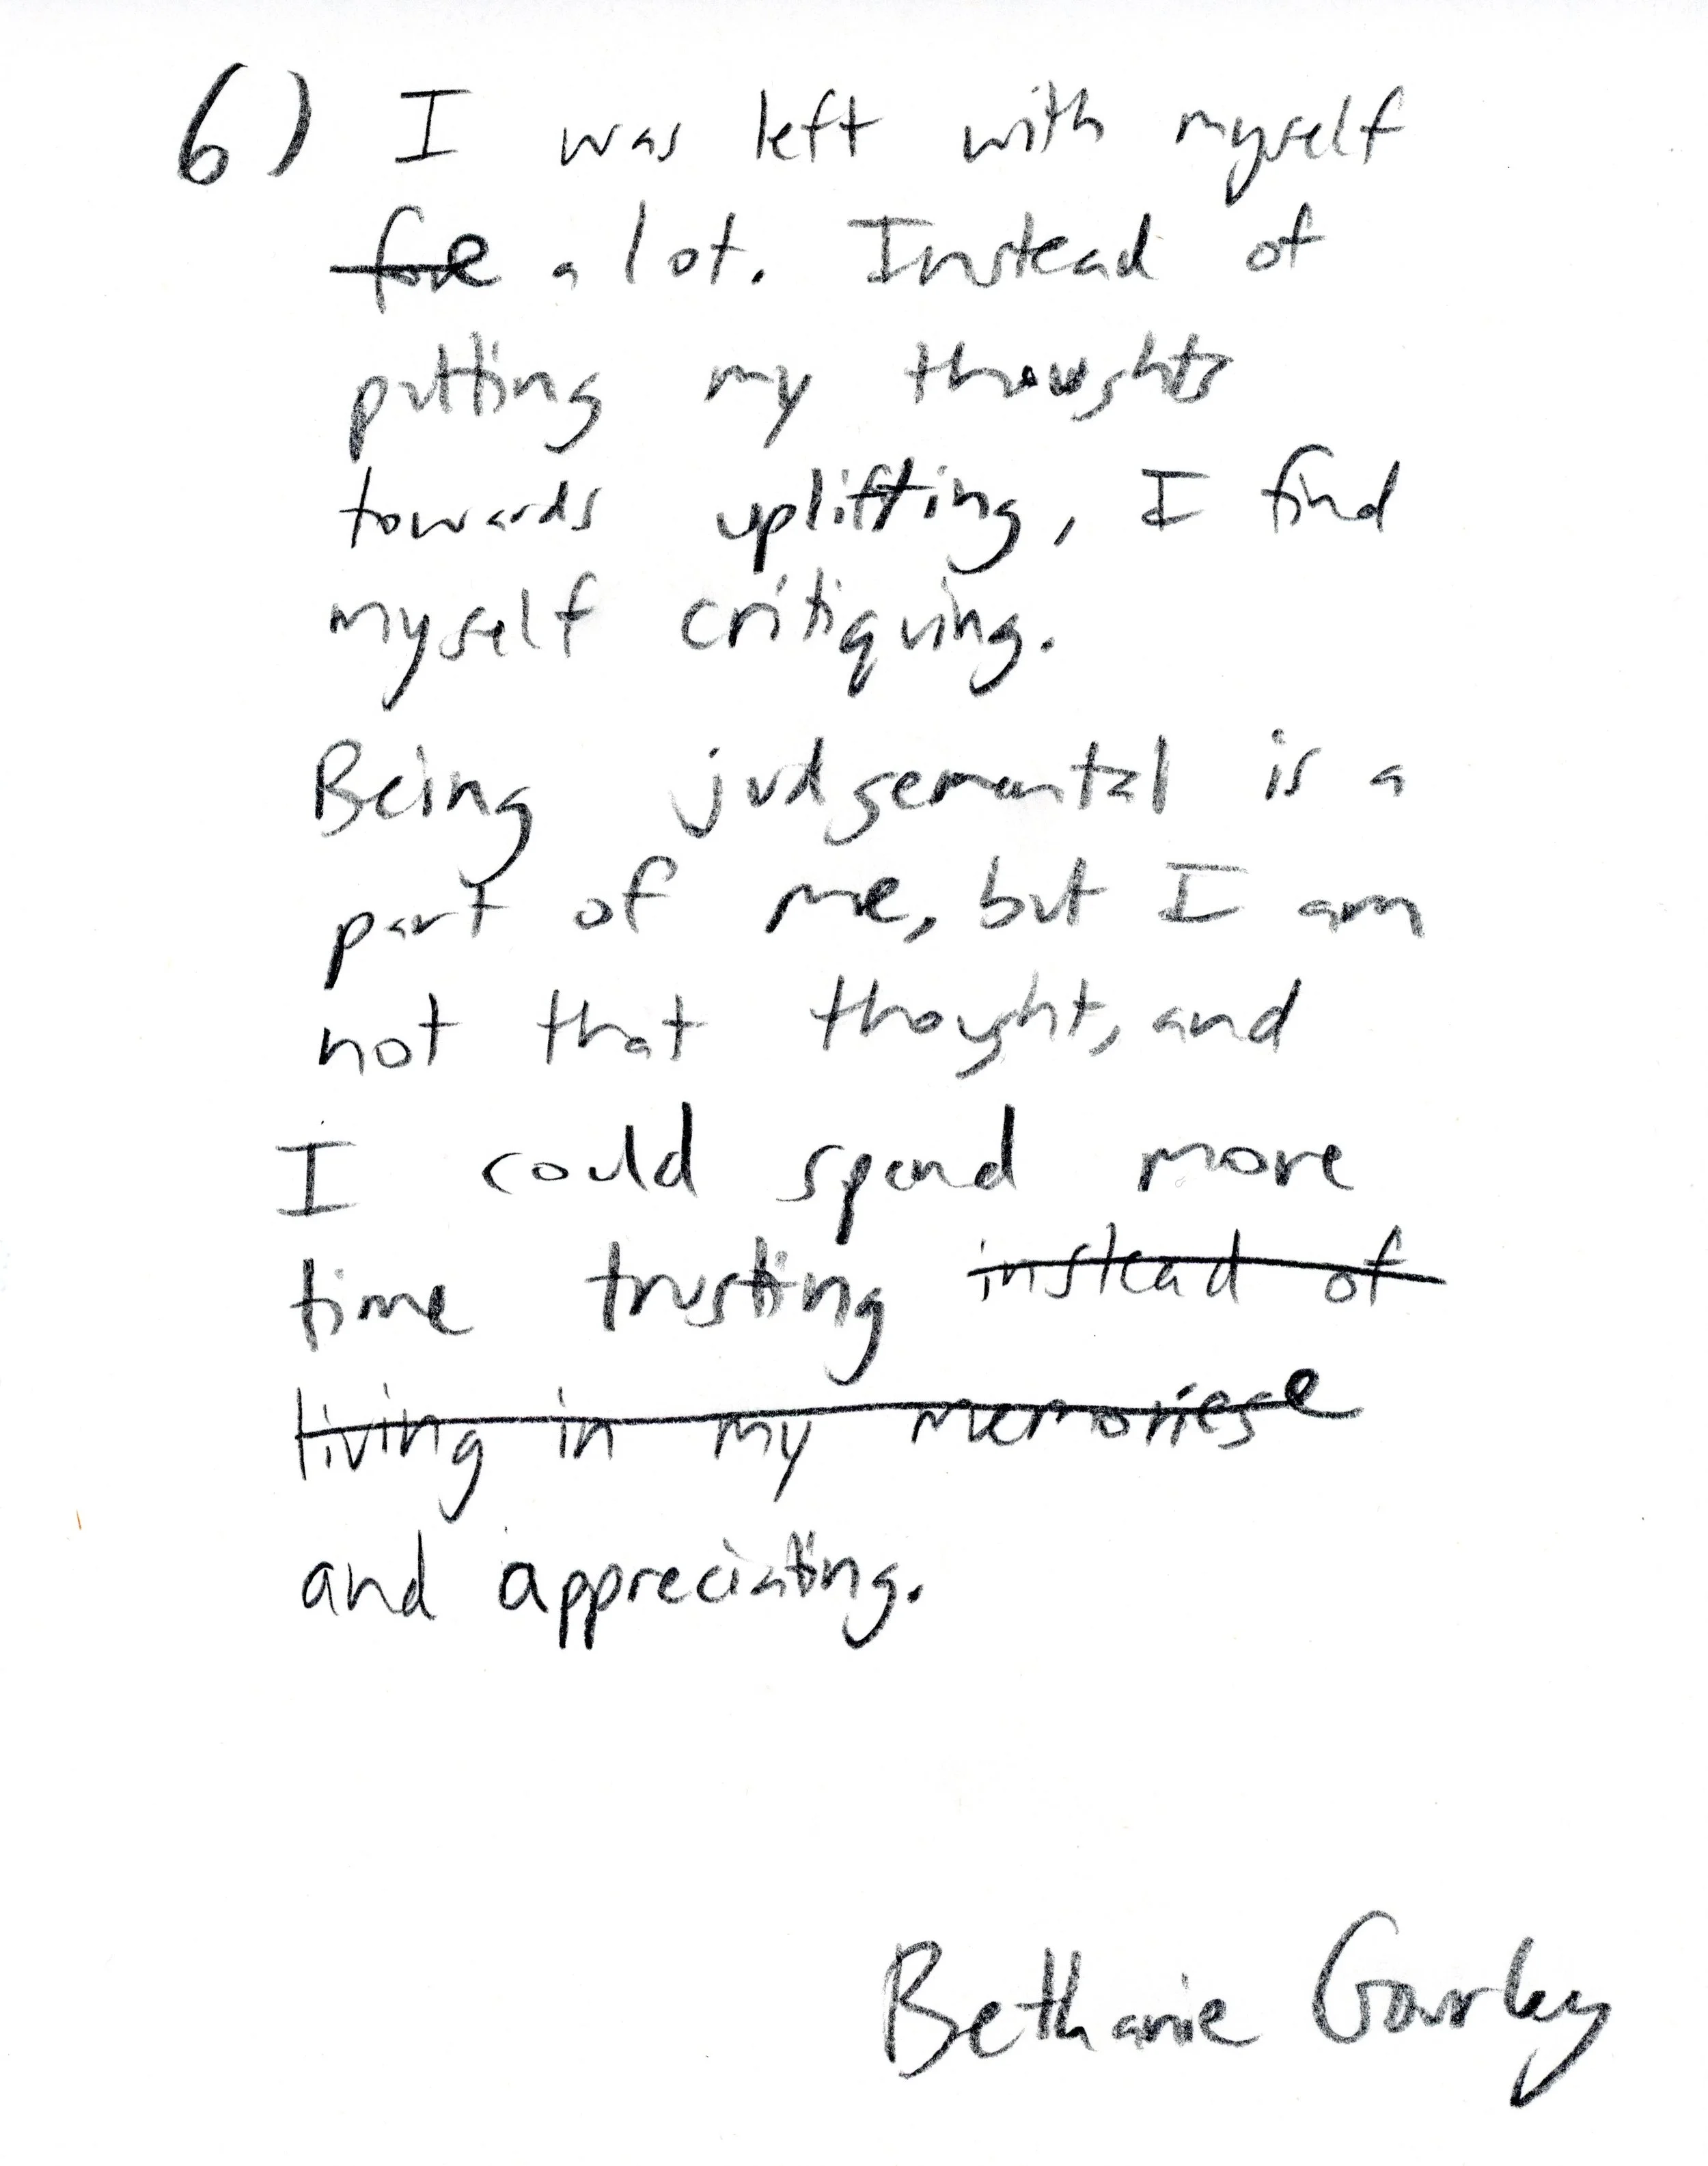 6) I was left with myself
for a lot. Instead of
putting my thoughts
towards uplifting, I find
myself critiquing.
Being judgemental is a
part of me, but I am
not that thought, and
I could spend more
time trusting instead of
living in my memories
and appreciating.
Bethanie Gourley